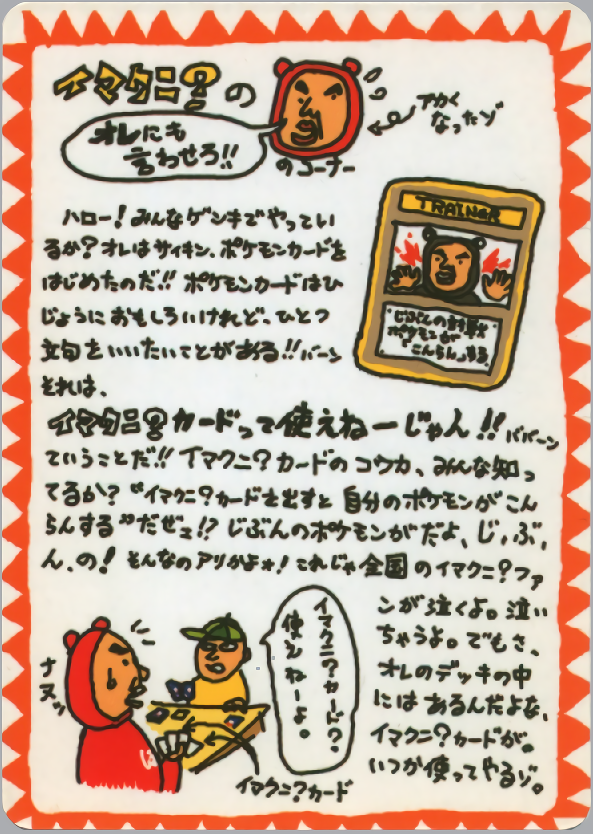 イマクニ?の
オレにも
言わせろ!!
のコーナー
アカく
なったゾ
ハロー!みんなゲンキでやってい
るか?オレはサイキン、ポケモンカードを
はじめたのだ!!ポケモンカードはひ
じょうにおもしろいけれど、ひとつ
文句をいいたいことがある!!バーン
それは、
TRAINER
じぶんの対戦
ポケモンが
「こんらん」する
イマクニ?カードって使えねーじゃん!!ババーン
ていうことだ!!イマクニ?カードのコウカ、みんな知っ
てるか?“イマクニ?カードを出すと自分のポケモンがこん
らんする”だぜェ!?じぶんのポケモンがだよ、じ,ぶ,
ん,の!そんなのアリかよォ!これじゃ全国のイマクニ?ファ
ンが泣くよ。泣い
ちゃうよ。でもさ、
オレのデッキの中
にはあるんだよな、
イマクニ?カードが。
いつか使ってやるゾ。
イマクニ?カード?
使えねーよ。
ナヌッ
イマクニ?カード